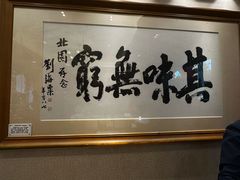 其味無窮
北園存念
劉海粟